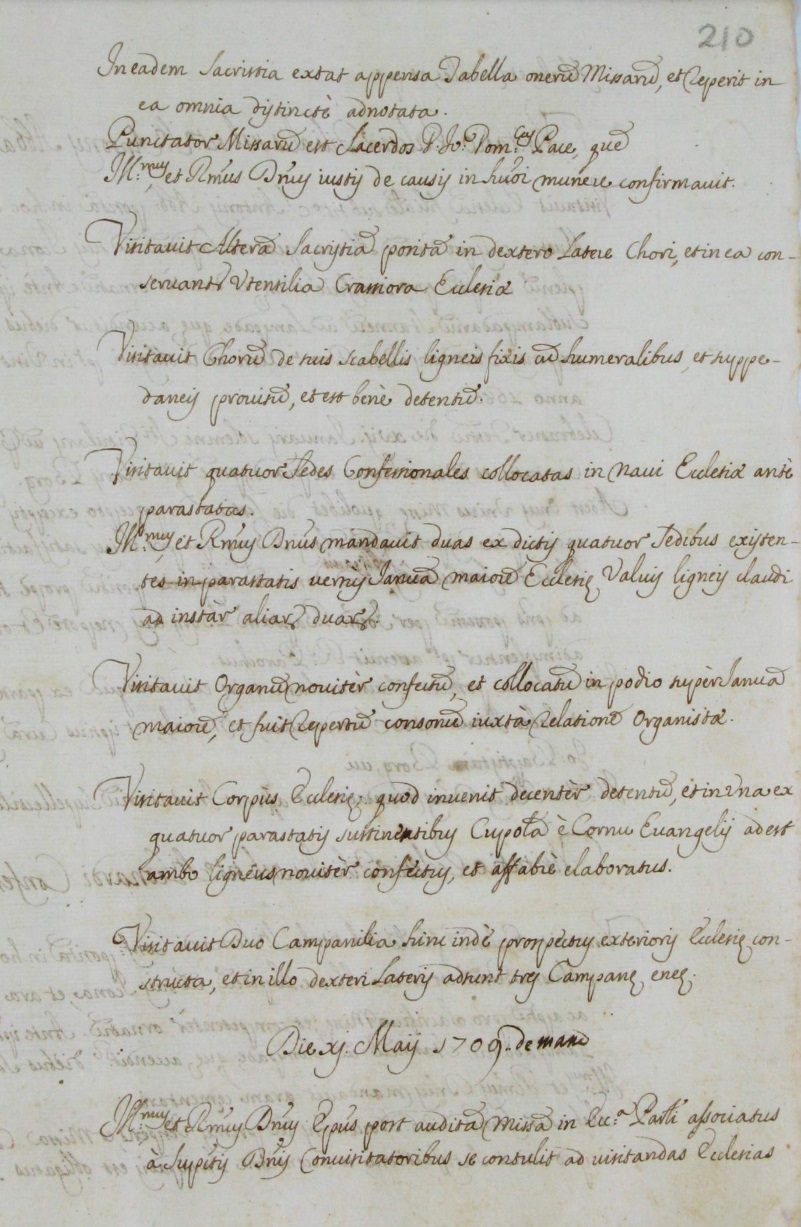 210
In eadem Sacristia extat appensa Tabella onerũ Missarũ, et reperit in
ea omnia distinctè adnotata.
Punctator Missarũ est Sacerdos D. Jo. Dom.cus Pace, quẽ
Ill.mus, et Rm̃us Dñus iustis de causis in hm̃õi munere confirmavit.
Visitavit Alterã Sacristiã positã in dextero Latere Chori, et in ea con-
servantr Utensilia Crassiora Ecclesiæ
Visitavit Chorũ de suis scabellis ligneis fixis cũ humeralibus, et suppe-
daneis provisũ, et est benè detentũ.
Visitavit quatuor Sedes Confessionales collocatas in Navi Ecclesiæ antè
parastatas.
Ill.mus, et Rm̃us Dñus mandavit duas ex dictis quatuor Sedibus existen-
tes in parastatis versus Januã maiorẽ Ecclesię Valvis ligneis claudi
ad instàr aliarũ duarũ.
Visitavit Organũ novitèr confectũ, et collocatũ in podio supèr Januã
maiorẽ, et fuit repertũ consonũ iuxtà relationẽ Organistæ.
Visitavit Corpus Ecclesię, quod invenit decentèr detentũ, et in una ex
quatuor parastatis sustinentibus Cupolã è Cornu Evangelij adest
ambo ligneus novitèr confectus, et affabrè elaboratus.
Visitavit Duo Campanilia hinc indè prospectus exterioris Ecclesię con-
structa, et in illo dexteri Lateris adsunt tres Campanę eneę.
Die xj. Maij 1709. de manè
Ill.mus et Rm̃us Dñus Ep̃us post auditã Missã in Ecc.a Par̃li associatus
à supt̃is Dñis Convisitatoribus se contulit ad visitandas Ecclesias